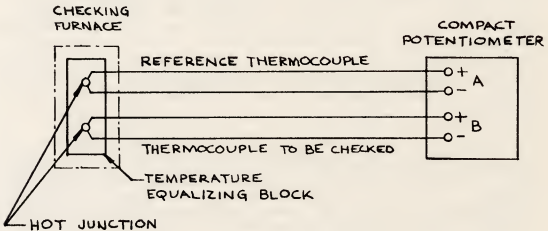 CHECKING
FURNACE
COMPACT
POTENTIOMETER
REFERENCE THERMOCOUPLE
+ A
-
+ B
-
THERMOCOUPLE TO BE CHECKED
TEMPERATURE
EQUALIZING BLOCK
HOT JUNCTION